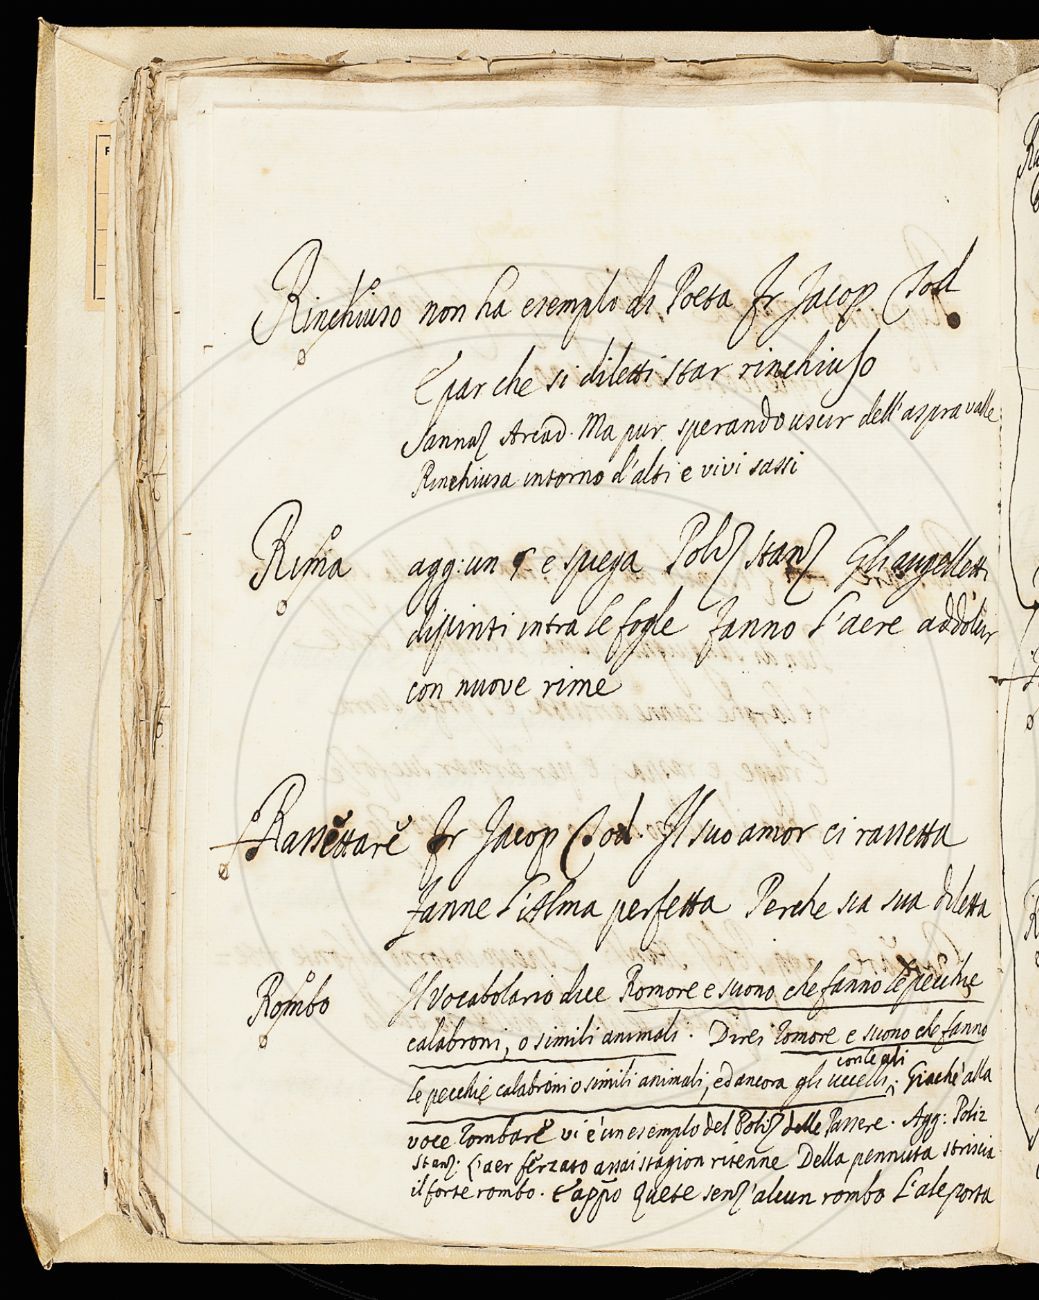 Rinchiuso non ha esempio di Poeta Fr Jacop Tod
E par che si diletti star rinchiuso
Sannaz Arcad. Ma pur sperando uscir dell'aspra valle
Rinchiusa intorno d'alti e vivi sassi
Rima agg: un § e spiega Poliz stanz Gli augelletti
dipinti intra le foglie Fanno l'aere addolcir
con nuove rime
Rassettare Fr Jacop Tod. Il suo amor ci rassetta
Fanne l'Alma perfetta Perche sia sua diletta
Rombo Il Vocabolario dice Romore e suono che fanno le pecchie
calabroni, o simili animali. Direi romore e suono che fanno
con le ali
le pecchie calabroni o simili animali, ed ancora gli uccelli; Giache alla
voce rombare vi è un esempio del Poliz delle Passere. Agg: Poliz
Stanz. L'aer ferzato assai stagion ritenne Della pennuta striscia
il forte rombo. E appo Quete senz'alcun rombo l'ale porta